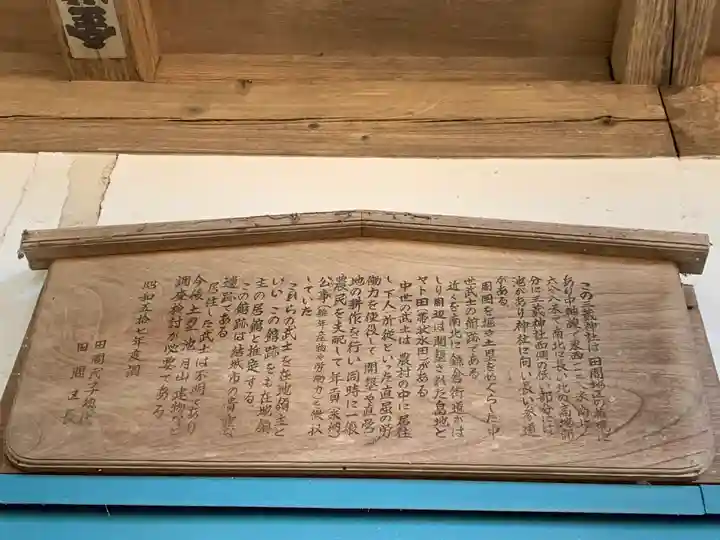 この三蔵神社は田間地区の
あり中軸線で東西一一〇米南北
六八八本で南北に長い北の高地部
分に三蔵神社西側の低い部分には
池があり神社に向い長い参道
がある
周囲を堀や土塁をめぐらした中
世武士の館跡である
近くを南北に鎌倉街道がは
しり周辺は開墾された畠地と
ヤト田帯状水田がある
中世の武士は農村の中に居住
し下人所従といった直属の労
働力を使役して開墾や直営
地の耕作を行い同時に一般
農民を支配して年貢(米納)
公事(雑年産物や労働力)を徴収
していた
これらの武士を在地領主と
いいこの館跡をも在地領
主の居館と推定する
この館跡は結城市の貴重な
遺跡である
居住した武士は不明であり
今後土塁池月山建物など
調査検討が必要である
昭和五拾七年度調
田間氏子総代
田間区長